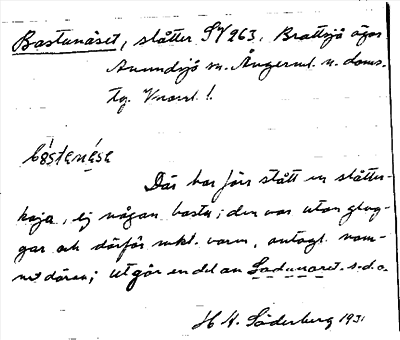 Bastunäset, slåtter SV 263. Brattsjö ägor
Anundsjö sn. Ångerml. n. doms.
tg. Vnorrl. l.
båstenése
Där har förr stått en slåtter-
koja, ej någon bastu; den var utan glug-
gar och därför mkt. varm, antagl. nam-
net däran; utgör en del av Ladunäset. s.d.o.
H K. Söderberg 1931